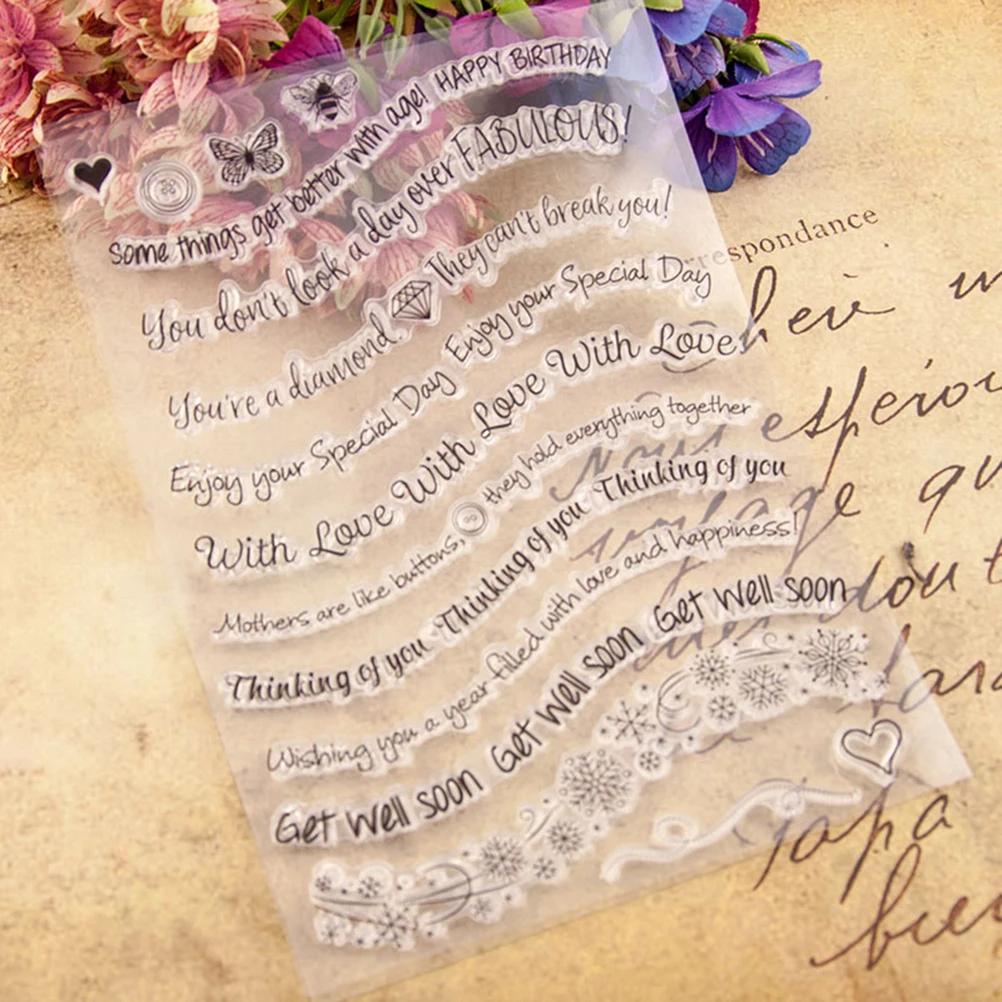 Some things get better with age! HAPPY BIRTHDAY
You don't look a day over FABULOUS!
You're a diamond. They can't break you!
Enjoy your Special Day Enjoy your Special Day
With Love With Love With Love With Love
Mothers are like buttons, they hold everything together
Thinking of you Thinking of you Thinking of you
Wishing you a year filled with love and happiness!
Get Well soon Get Well soon Get Well soon
respondance